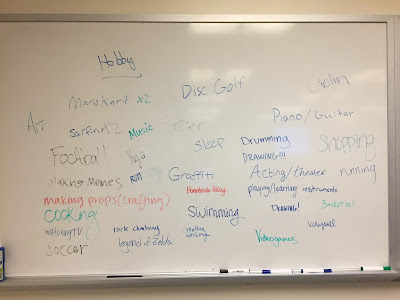 Hobby
Disc Golf
Violin
MarioKart x2
Art
Piano/Guitar
Surfing
Music
soccer
Sleep
Drumming
Shopping
DRAWING!!!
Football
Yoga
Graffiti
Acting/theater
running
Making Memes
RUN
playing/learning instruments
making props (crafting)
Swimming
DRAWING!
Basketball
cooking
watching TV
rock climbing
creative
Volleyball
soccer
legend of Zelda
Videogames